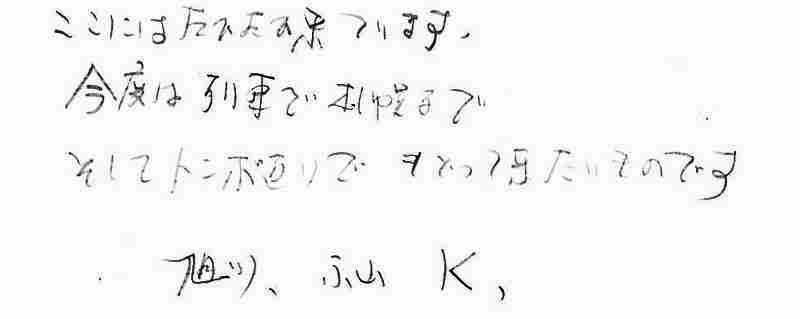 ここにはたびたび来ています。
今度は列車で札幌まで
そしてトンボ返りでもどって来たいものです
旭川、 K、